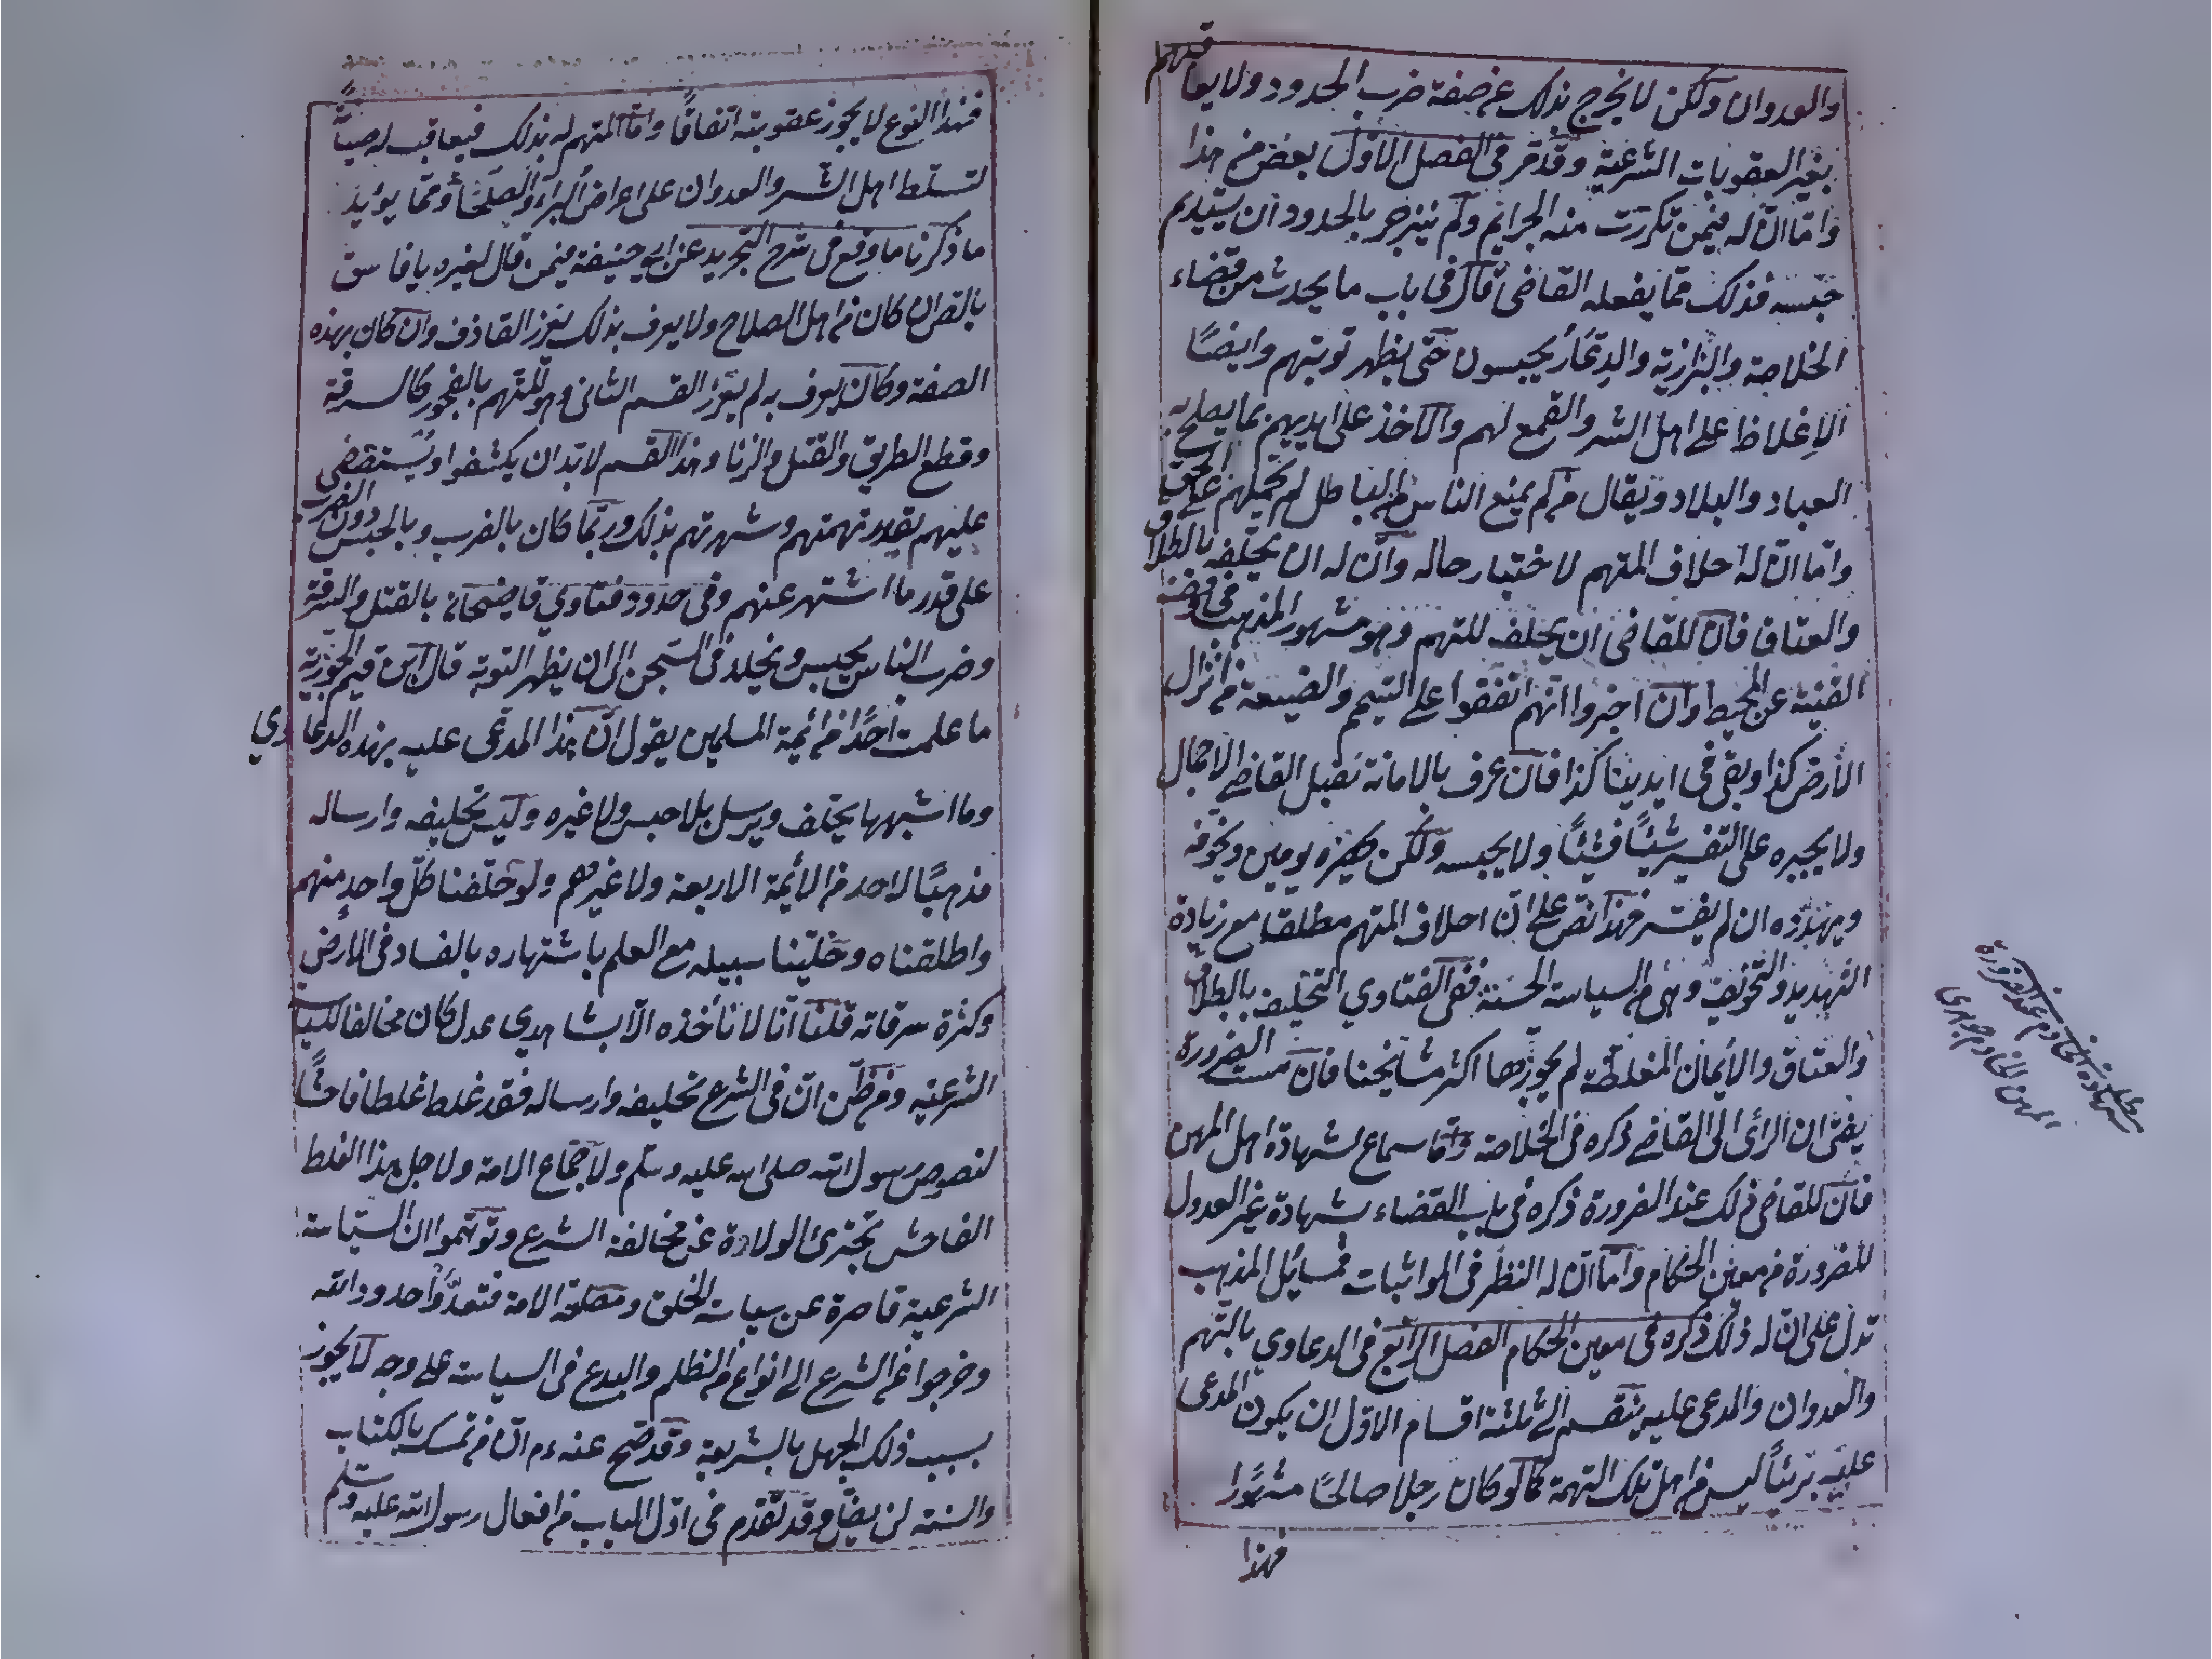 والعدوان ولكن لا يخرج بذلك عن صفة ضرب الحدود ولا يعاقبهم
بغير العقوبات الشرعية وقد مر في الفصل الأول بعض من هذا
وامّا انّ له فيمن تكررت منه الجرايم ولم ينزجر بالحدود ان يستديم
حبسه فذلك ممّا يفعله القاضي قال في باب ما يحدث من قضاء
الخلاصة والبزازية والدعّار يحبسون حتّى يظهر توبتهم وايضًا
الإغلاظ على اهل الشر والقمع لهم والاخذ على ايديهم بما يصلح به
العباد والبلاد ويقال من لم يمنع الناس من الباطل لم يحملهم على الحق
وامّا انّ له احلاف المتهم لاختبار حاله وانّ له ان يحلّفه بالطلاق
والعتاق فانّ للقاضي ان يحلف المتهم وهو مشهور المذهب في
القنية عن المحيط وان اخبروا انهم اتفقوا على اليتيم والضيعة من انزال
الأرض كذا وبقي في ايدينا كذا فان عرف بالامانة يقبل القاضي الاجمال
ولا يجبره على التفسير شيئًا فشيئًا ولا يحبسه ولكن يحضره يومين ويخوّفه
ويهدّده ان لم يفسّر فهذا نصّ على انّ احلاف المتهم مطلقا مع زيادة
التهديد والتخويف وهي من السياسة الحسنة ففي الفتاوي التحليف بالطلاق
والعتاق والأيمان المغلّظة لم يجوّزها اكثر مشايخنا فان مست الضرورة
يفتى ان الرأى الى القاضي ذكره في الخلاصة وامّا سماع لشهادة اهل المهن
فانّ للقاضي ذلك عند الضرورة ذكره في باب القضاء بشهادة غير العدول
للضرورة من معين الحكام وامّا انّ له النظر في المواثبات فمسائل المذهب
تدل على انّ له ذلك ذكره في معين الحكام الفصل الرابع في الدعاوي بالتهم
والعدوان والمدعى عليه ينقسم الى ثلثة اقسام الاوّل ان يكون المدعى
عليه بريئًا ليس من اهل تلك التهمة كما لو كان رجلا صالحًا مشهورًا
فهذا
فهذا النوع لا يجوز عقوبته اتفاقًا وامّا المتهم له بذلك فيعاقب له صيانةً
لتسلط اهل الشر والعدوان على اعراض البراء والصلحاء وممّا يؤيد
ما ذكرنا ما وقع في شرح التجريد عن ابي حنيفة فيمن قال لغيره يا فاسق
يا لص ان كان من اهل الصلاح ولا يعرف بذلك يعزر القاذف وان كان بهذه
الصفة وكان يعرف به لم يعزر القسم الثاني وهو المتهم بالفجور كالسرقة
وقطع الطريق والقتل والزنا وهذا القسم لا بد ان يكشفوا ويستقضي
عليهم بقدر تهمتهم وشهرتهم بذلك وربّما كان بالضرب وبالحبس دون الضرب
على قدر ما اشتهر عنهم وفي حدود فتاوي قاضيخان بالقتل والسرقة
وضرب الناس يحبس ويخلد في السجن الى ان يظهر التوبة قال ابن قيم الجوزية
ما علمت احدًا من ائمة المسلمين يقول انّ هذا المدعى عليه بهذه الدعاوي
وما اشبهها يحلف ويرسل بلا حبس ولا غيره وليس تحليفه وارساله
مذهبًا لاحد من الأئمة الاربعة ولا غيرهم ولو حلّفنا كلّ واحد منهم
واطلقناه وخلّينا سبيله مع العلم باشتهاره بالفساد في الأرض
وكثرة سرقاته قلنا انا لا نأخذه الا بشاهدي عدل كان مخالفا للسياسة
الشرعية ومن ظن انّ في الشرع تحليفه وارساله فقد غلط غلطا فاحشًا
لنصوص رسول الله صلى الله عليه وسلم ولاجماع الامة ولاجل هذا الغلط
الفاحش تجترئ الولادة عن مخالفة الشرع وتوهّموا ان السياسة
الشرعية قاصرة عن سياسة الخلق ومصلحة الامة فتعدّوا حدود الله
وخرجوا من الشرع الى انواع من الظلم والبدع في السياسة على وجه لا يجوز
بسبب ذلك الجهل بالشريعة وقد صح عنه ءم انّ من تمسك بالكتاب
والسنة لن يضل وقد تقدم في اوّل الباب من افعال رسول الله عليه وسلم
مطلب
شهادة الخادم عند الضرورة